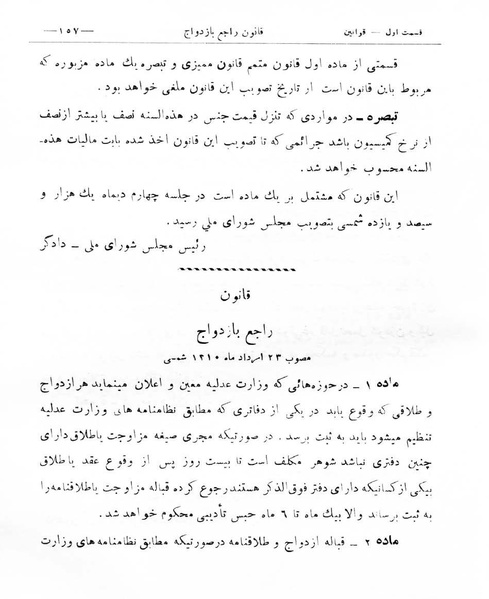 قسمت اول — قوانین
قانون راجع بازدواج
—۱۵۷—
قسمتی از ماده اول قانون متمم قانون ممیزی و تبصره یك ماده مزبوره که
مربوط باین قانون است از تاریخ تصویب این قانون ملغی خواهد بود.
تبصره ـ در مواردی که تنزل قیمت جنس در هذه السنه نصف یا بیشتر از نصف
از نرخ کمیسیون باشد جرائمی که تا تصویب این قانون اخذ شده بابت مالیات هذه‌ـ
السنه محسوب خواهد شد.
این قانون که مشتمل بر یك ماده است در جلسه چهارم دیماه یك هزار و
سیصد و یازده شمسی بتصویب مجلس شورای ملی رسید.
رئیس مجلس شورای ملی ـ دادگر
قانون
راجع بازدواج
مصوب ۲۳ امرداد ماه ۱۳۱۰ شمسی
ماده ۱ ـ در حوزه‌هائی که وزارت عدلیه معین و اعلان مینماید هر ازدواج
و طلاقی که وقوع یابد در یکی از دفاتری که مطابق نظامنامه های وزارت عدلیه
تنظیم میشود باید به ثبت برسد. در صورتیکه مجری صیغه مزاوجت یا طلاق دارای
چنین دفتری نباشد شوهر مکلف است تا بیست روز پس از وقوع عقد یا طلاق
بیکی از کسانیکه دارای دفتر فوق‌الذکر هستند رجوع کرده قباله مزاوجت یا طلاقنامه را
به ثبت برساند والا بیك ماه تا ۶ ماه حبس تأدیبی محکوم خواهد شد.
ماده ۲ ـ قباله ازدواج و طلاقنامه در صورتیکه مطابق نظامنامه های وزارت